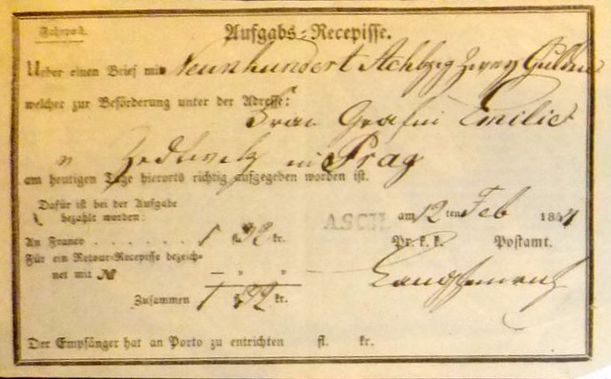 Fahrpost.
Aufgabs-Recepisse.
Ueber einen Brief mit Neunhundert Achtzig Zwey Gulden
welcher zur Beförderung unter der Adresse:
Frau Grafin Emilie
v Zedtwitz in Prag
am heutigen Tage hierorts richtig aufgegeben worden ist.
Dafür ist bei der Aufgabe
bezahlt worden:
ASCH. am 12 ten Feb 184
An Franco . . . . . . 1 fl. 32 kr.
Pr. k. k. Postamt.
Für ein Retour-Recepisse bezeich-
net mit № — " "
Zusammen 1 fl. 32 kr.
Der Empfänger hat an Porto zu entrichten fl. kr.